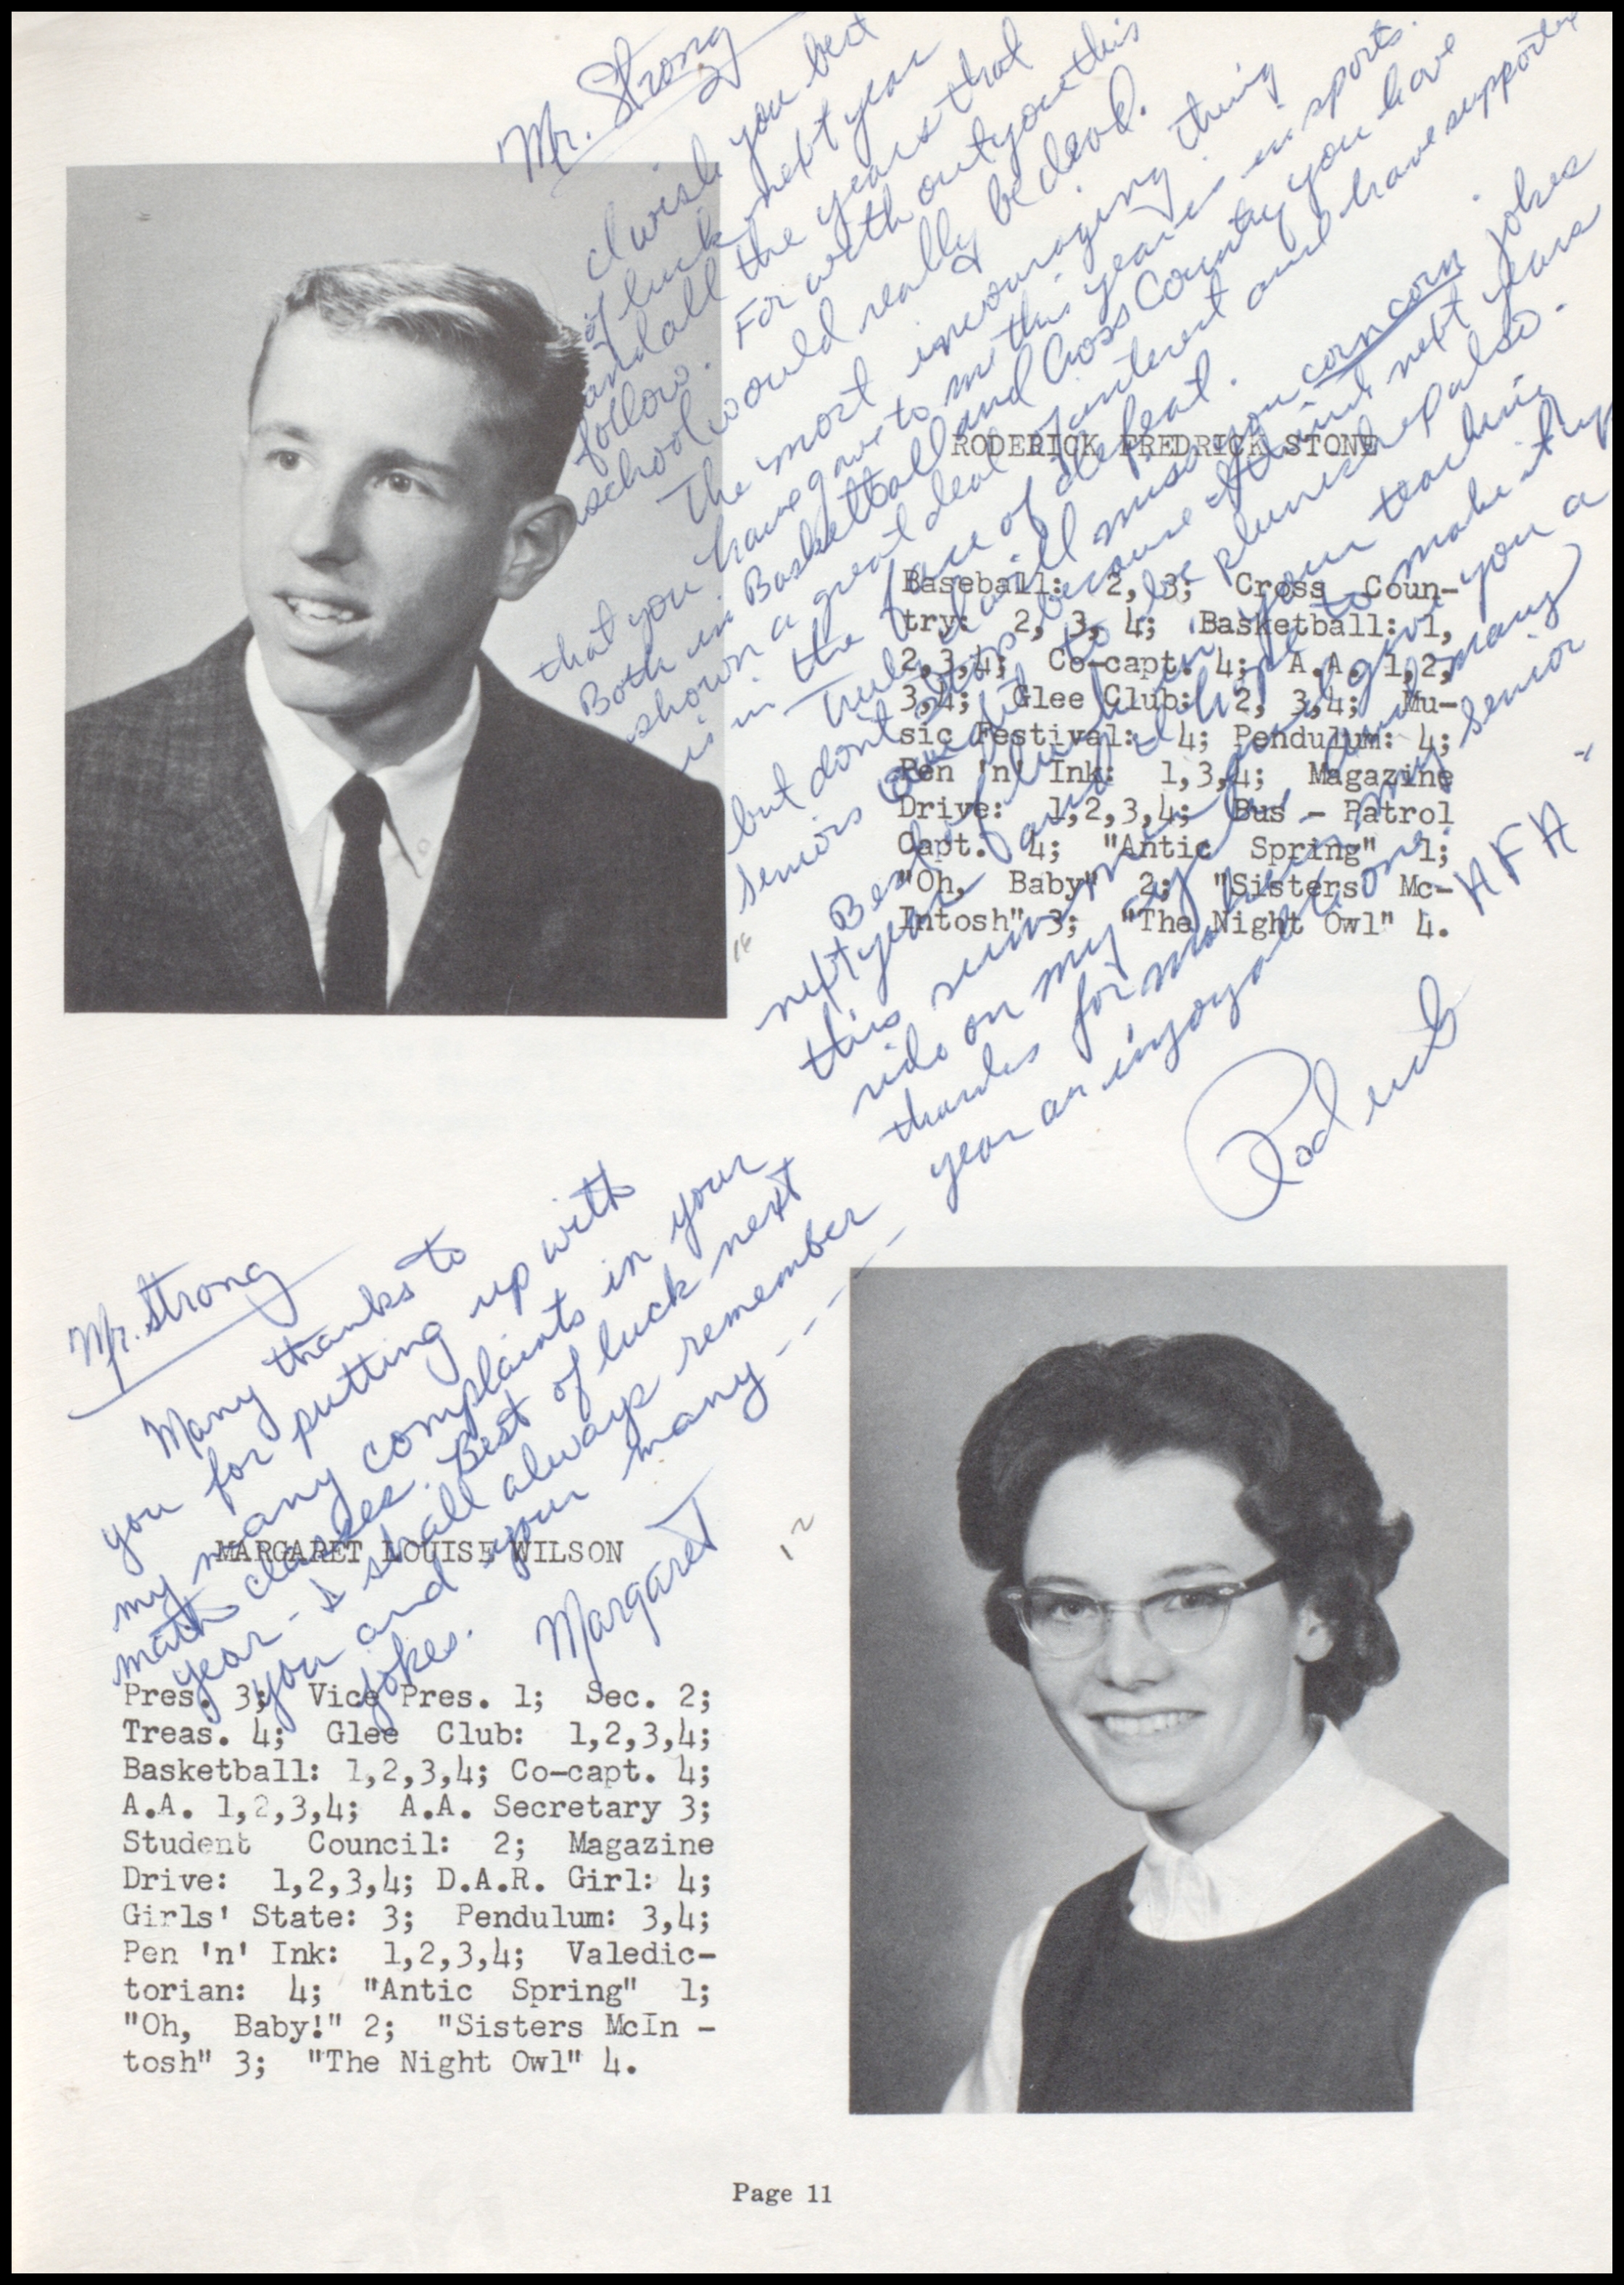 Mr. Strong
I wish you best
of luck next year
and all the years that
follow. For with out you this
school would really be dead.
The most incouraging thing
that you have gave to me this year is in sports.
Both in Basketball and Cross Country you have
shown a great deal of interest and have supported
us in the face of defeat.
Truely I will miss your corn corn jokes
but dont stop because next years
seniors to be punished also.
Best of luck in your teaching
next year and I hope to make it up
this summer and give you a
ride on my cycle. And many
thanks for making my senior
year an injoyable one.
AFA
Roderick
RODERICK FREDRICK STONE
Baseball: 2, 3; Cross Coun-
try: 2, 3, 4; Basketball: 1,
2,3,4; Co-capt. 4; A.A. 1,2,
3,4; Glee Club: 2, 3,4; Mu-
sic Festival: 4; Pendulum: 4;
Pen 'n' Ink: 1,3,4; Magazine
Drive: 1,2,3,4; Bus - Patrol
Capt. 4; "Antic Spring" 1;
"Oh, Baby" 2; "Sisters Mc-
Intosh" 3; "The Night Owl" 4.
18
Mr. Strong
Many thanks to
you for putting up with
my many complaints in your
math classes. Best of luck next
year - I shall always remember
you and your many - - - - -
jokes.
Margaret
12
MARGARET LOUISE WILSON
Pres. 3; Vice Pres. 1; Sec. 2;
Treas. 4; Glee Club: 1,2,3,4;
Basketball: 1,2,3,4; Co-capt. 4;
A.A. 1,2,3,4; A.A. Secretary 3;
Student Council: 2; Magazine
Drive: 1,2,3,4; D.A.R. Girl: 4;
Girls' State: 3; Pendulum: 3,4;
Pen 'n' Ink: 1,2,3,4; Valedic-
torian: 4; "Antic Spring" 1;
"Oh, Baby!" 2; "Sisters McIn -
tosh" 3; "The Night Owl" 4.
Page 11